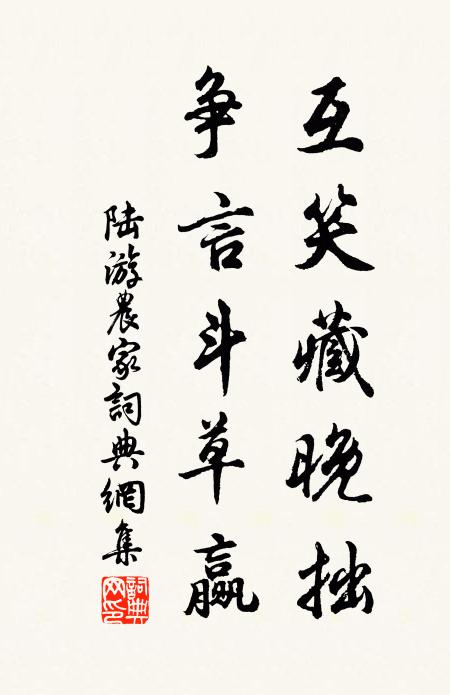 互笑藏晚拙
争言斗草赢
陆游農家詞典網集
詞典網印